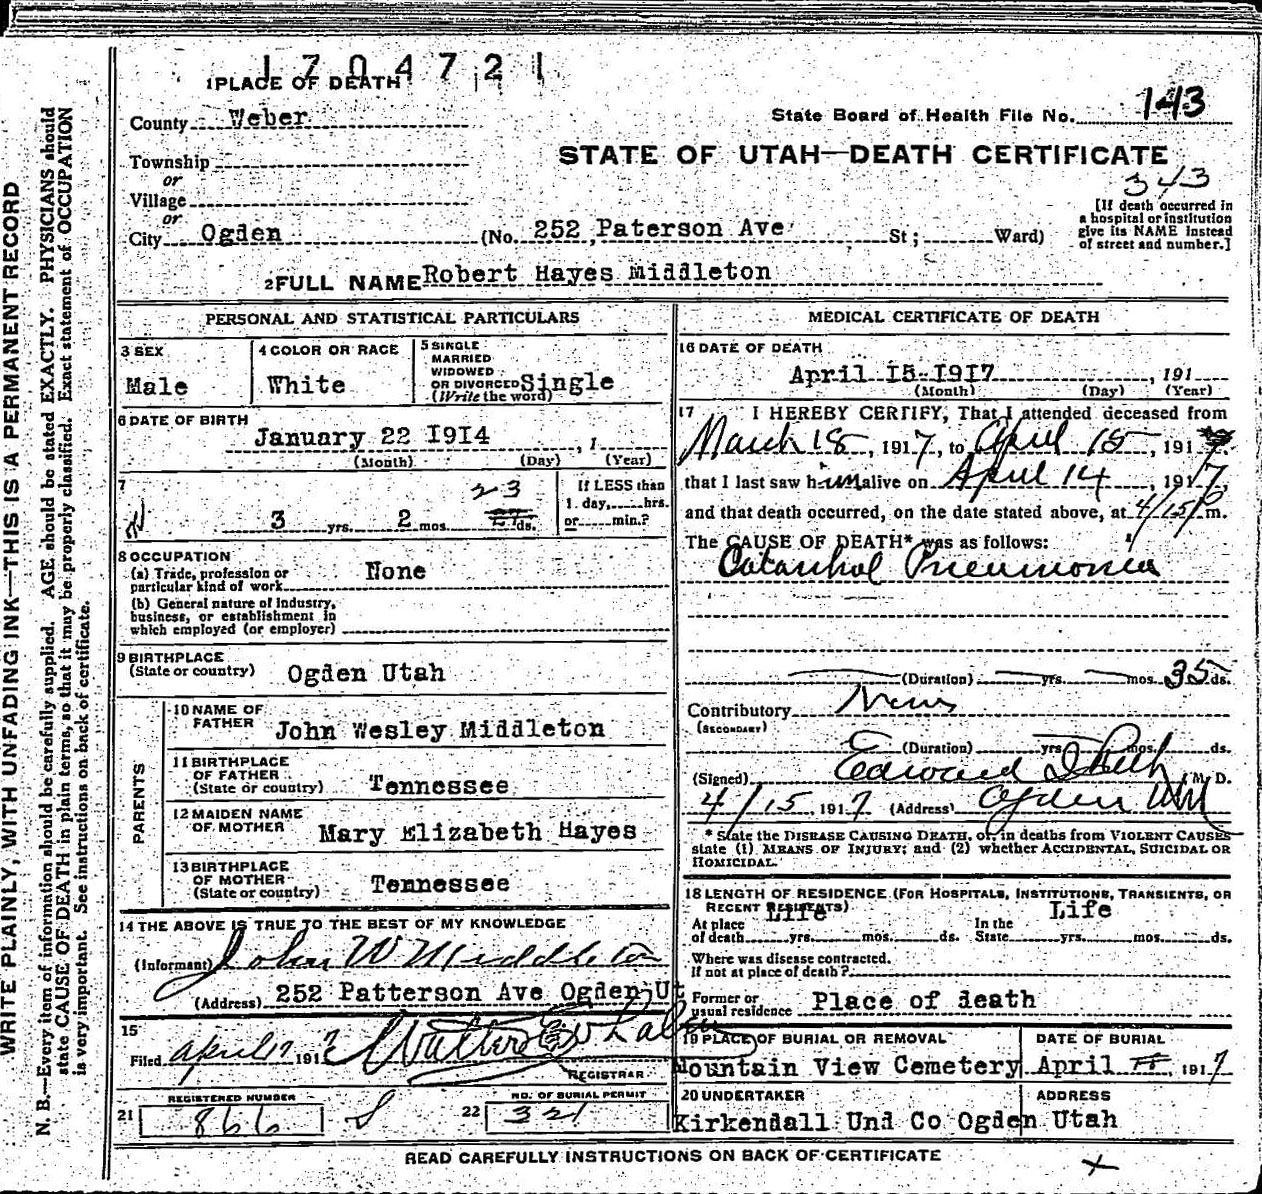 1704721
1 PLACE OF DEATH
County Weber
State Board of Health File No. 143
STATE OF UTAH—DEATH CERTIFICATE
Township
or
Village
or
343
[If death occurred in
a hospital or institution
give its NAME instead
of street and number.]
City Ogden (No. 252, Paterson Ave St; Ward)
2 FULL NAME Robert Hayes Middleton
PERSONAL AND STATISTICAL PARTICULARS
3 SEX
Male
4 COLOR OR RACE
White
5 SINGLE
MARRIED
WIDOWED
OR DIVORCED Single
(Write the word)
6 DATE OF BIRTH
January 22 1914, 1
(Month) (Day) (Year)
7
23
3 yrs. 2 mos. ds.
If LESS than
1 day, hrs.
or min.?
8 OCCUPATION
(a) Trade, profession or
particular kind of work None
(b) General nature of industry,
business, or establishment in
which employed (or employer)
9 BIRTHPLACE
(State or country) Ogden Utah
PARENTS
10 NAME OF
FATHER John Wesley Middleton
11 BIRTHPLACE
OF FATHER
(State or country) Tennessee
12 MAIDEN NAME
OF MOTHER Mary Elizabeth Hayes
13 BIRTHPLACE
OF MOTHER
(State or country) Tennessee
14 THE ABOVE IS TRUE TO THE BEST OF MY KNOWLEDGE
(Informant) John W Middleton
(Address) 252 Patterson Ave Ogden Ut
15
Filed April 17 191 Walter
REGISTRAR
REGISTERED NUMBER
21 866
NO. OF BURIAL PERMIT
22 321
MEDICAL CERTIFICATE OF DEATH
16 DATE OF DEATH
April 15-1917, 191
(Month) (Day) (Year)
17 I HEREBY CERTIFY, That I attended deceased from
March 18, 1917, to April 15, 1917
that I last saw him alive on April 14, 1917,
and that death occurred, on the date stated above, at 4/15/ m.
The CAUSE OF DEATH* was as follows:
Catarrhal Pneumonia
(Duration) yrs. mos. 35 ds.
Contributory
(SECONDARY)
(Duration) yrs. mos. ds.
(Signed) Edward M. D.
4/15 1917 (Address) Ogden
* State the DISEASE CAUSING DEATH, or, in deaths from VIOLENT CAUSES
state (1) MEANS OF INJURY; and (2) whether ACCIDENTAL, SUICIDAL OR
HOMICIDAL.
18 LENGTH OF RESIDENCE (FOR HOSPITALS, INSTITUTIONS, TRANSIENTS, OR
RECENT RESIDENTS)
Life Life
At place In the
of death yrs. mos. ds. State yrs. mos. ds.
Where was disease contracted,
if not at place of death?
Former or
usual residence Place of death
19 PLACE OF BURIAL OR REMOVAL
Mountain View Cemetery
DATE OF BURIAL
April 1917
20 UNDERTAKER
Kirkendall Und Co
ADDRESS
Ogden Utah
READ CAREFULLY INSTRUCTIONS ON BACK OF CERTIFICATE
WRITE PLAINLY, WITH UNFADING INK—THIS IS A PERMANENT RECORD
N. B.—Every item of information should be carefully supplied. AGE should be stated EXACTLY. PHYSICIANS should
state CAUSE OF DEATH in plain terms, so that it may be properly classified. Exact statement of OCCUPATION
is very important. See instructions on back of certificate.